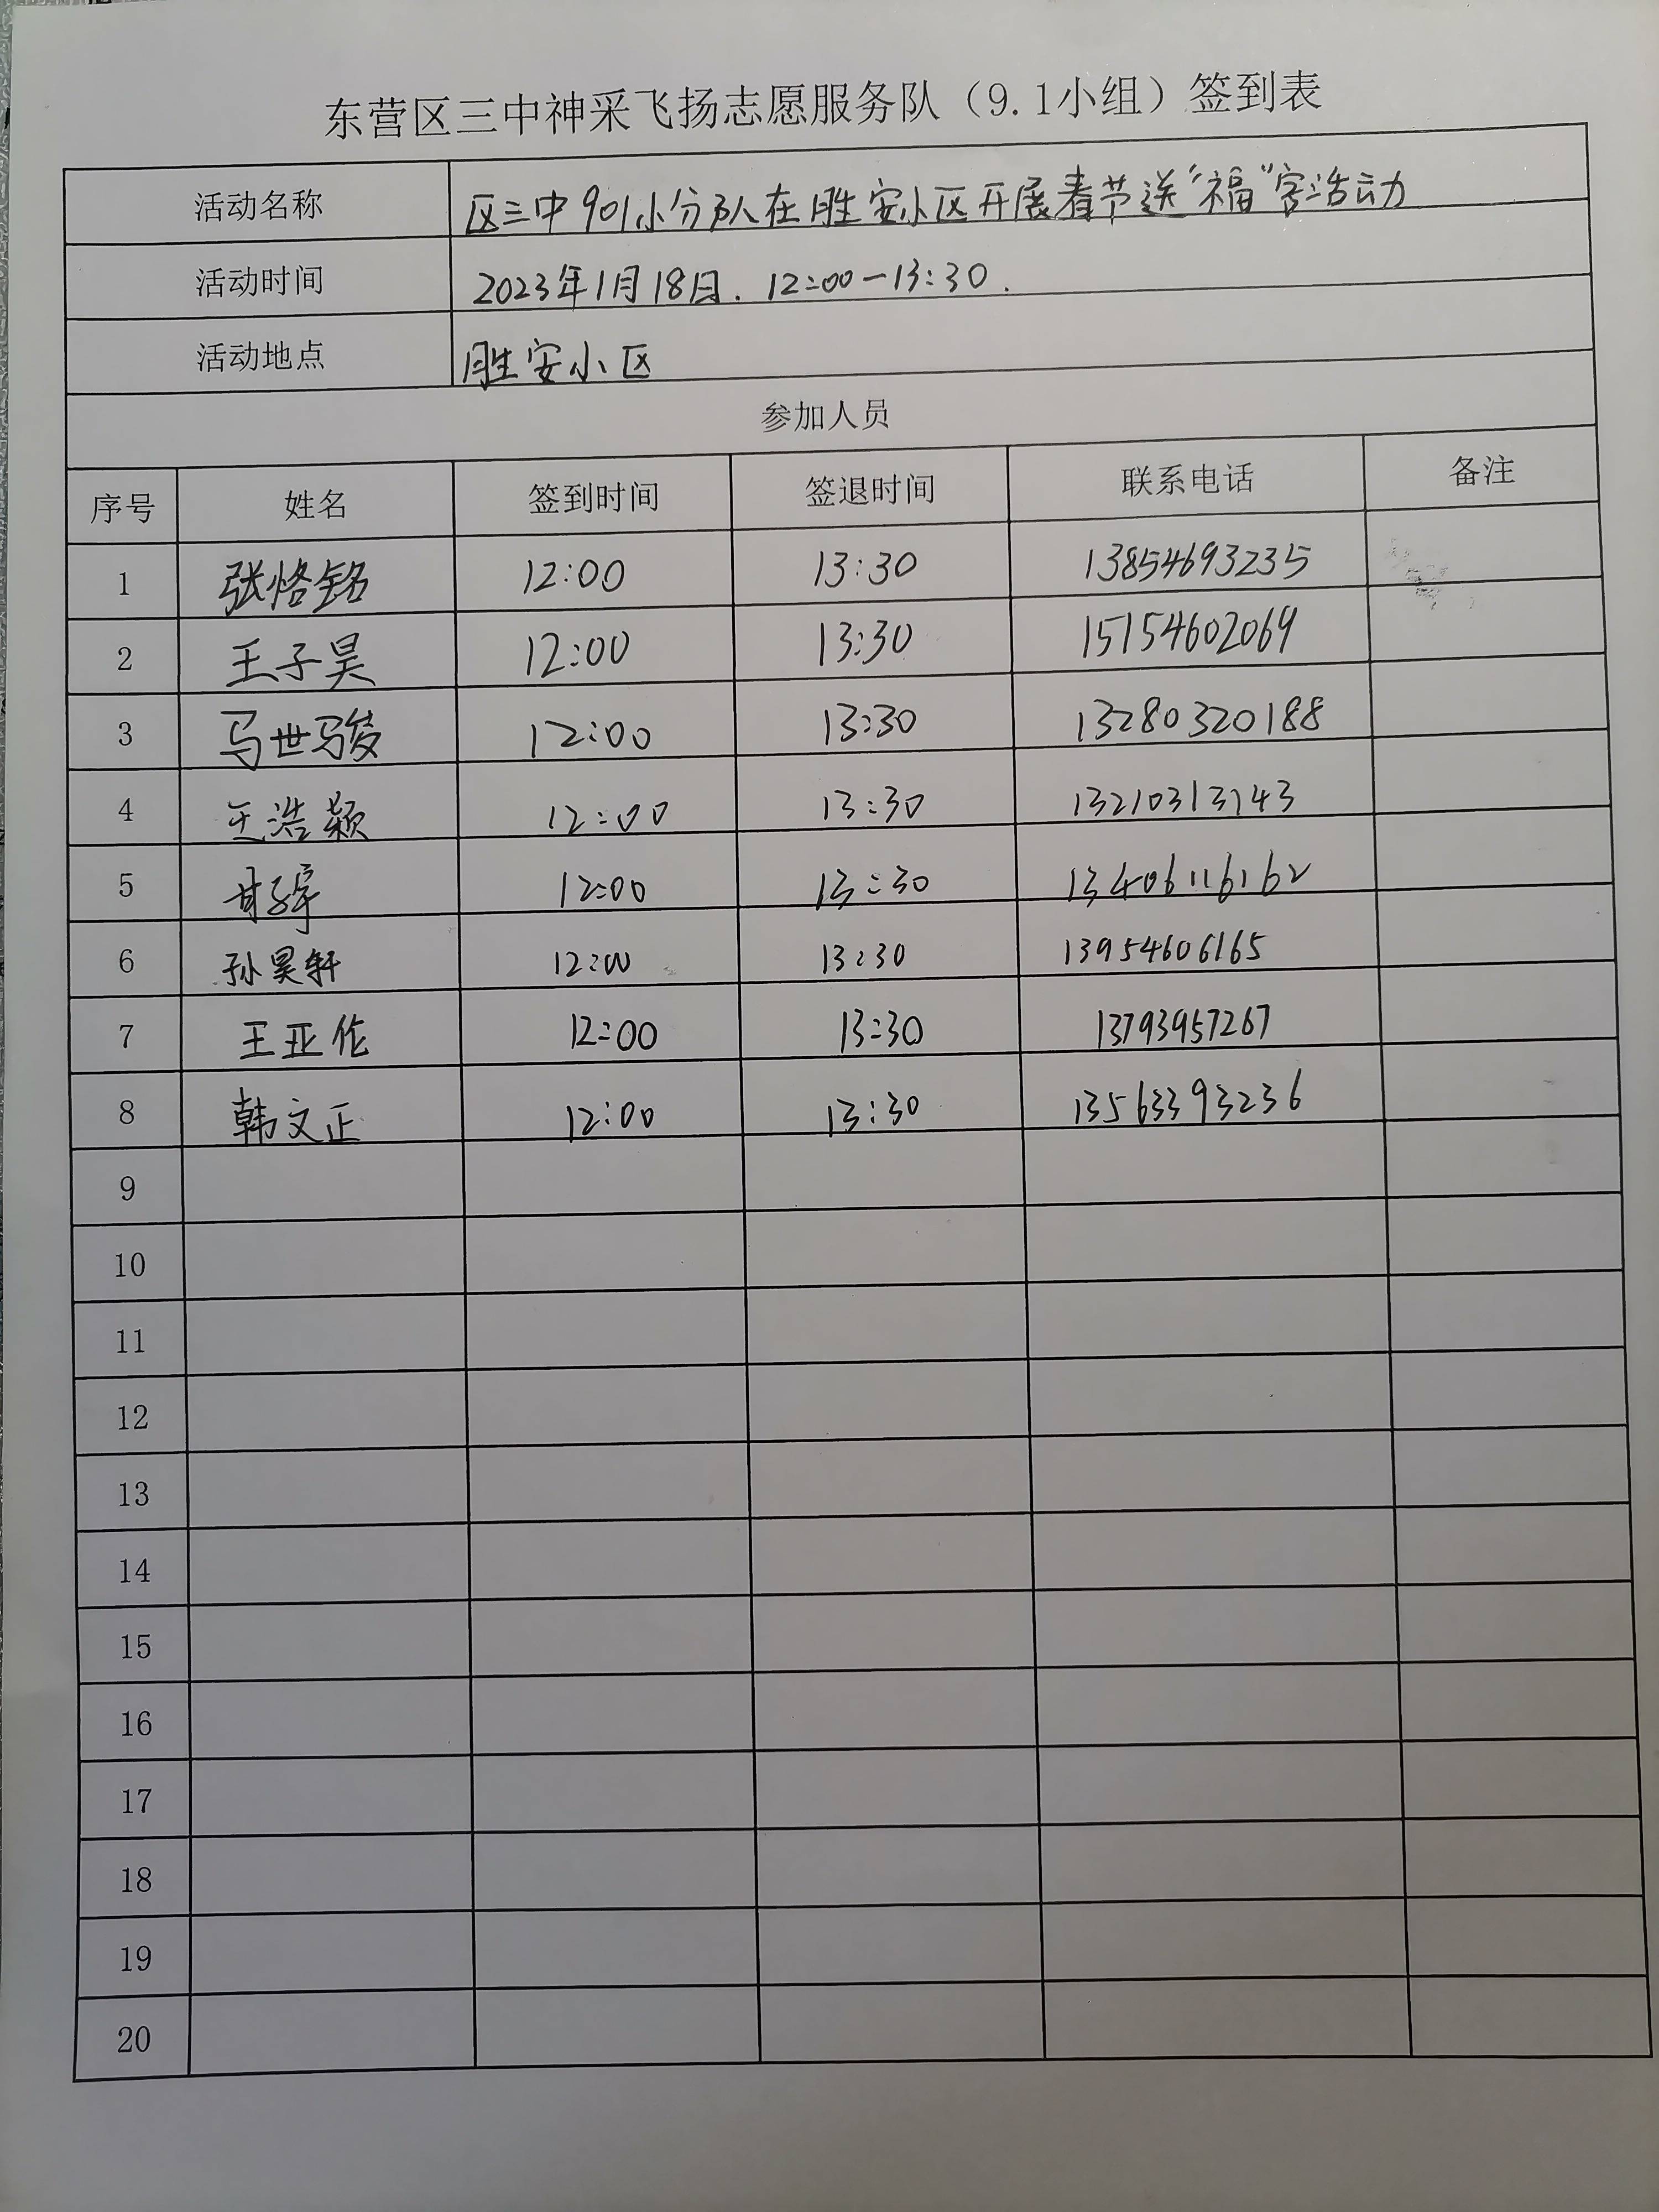 东营区三中神采飞扬志愿服务队（9.1小组）签到表
活动名称 区三中901小分队在胜安小区开展春节送“福”字活动
活动时间 2023年1月18日. 12:00-13:30.
活动地点 胜安小区
参加人员
序号 姓名 签到时间 签退时间 联系电话 备注
1 张烙铭 12:00 13:30 13854693235
2 王子昊 12:00 13:30 15154602069
3 马世骏 12:00 13:30 13280320188
4 王浩颖 12:00 13:30 13210313743
5 12:00 13:30 13406116162
6 孙昊轩 12:00 13:30 13954606165
7 王亚伦 12:00 13:30 13793957267
8 韩文正 12:00 13:30 13563393236
9
10
11
12
13
14
15
16
17
18
19
20